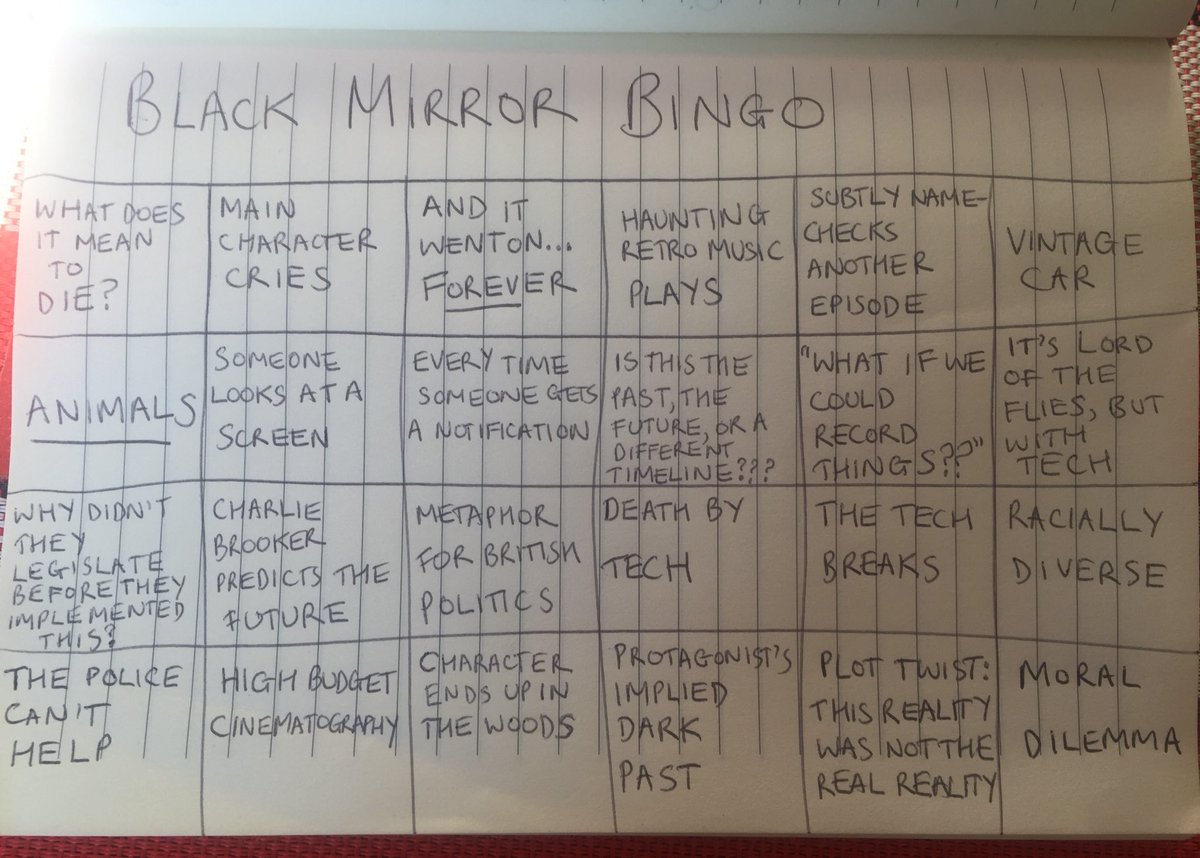 BLACK MIRROR BINGO
WHAT DOES
IT MEAN
TO
DIE?
MAIN
CHARACTER
CRIES
AND IT
WENT ON...
FOREVER
HAUNTING
RETRO MUSIC
PLAYS
SUBTLY NAME-
CHECKS
ANOTHER
EPISODE
VINTAGE
CAR
ANIMALS
SOMEONE
LOOKS AT A
SCREEN
EVERY TIME
SOMEONE GETS
A NOTIFICATION
IS THIS THE
PAST, THE
FUTURE, OR A
DIFFERENT
TIMELINE???
"WHAT IF WE
COULD
RECORD
THINGS??"
IT'S LORD
OF THE
FLIES, BUT
WITH
TECH
WHY DIDN'T
THEY
LEGISLATE
BEFORE THEY
IMPLEMENTED
THIS?
CHARLIE
BROOKER
PREDICTS THE
FUTURE
METAPHOR
FOR BRITISH
POLITICS
DEATH BY
TECH
THE TECH
BREAKS
RACIALLY
DIVERSE
THE POLICE
CAN'T
HELP
HIGH BUDGET
CINEMATOGRAPHY
CHARACTER
ENDS UP IN
THE WOODS
PROTAGONIST'S
IMPLIED
DARK
PAST
PLOT TWIST:
THIS REALITY
WAS NOT THE
REAL REALITY
MORAL
DILEMMA